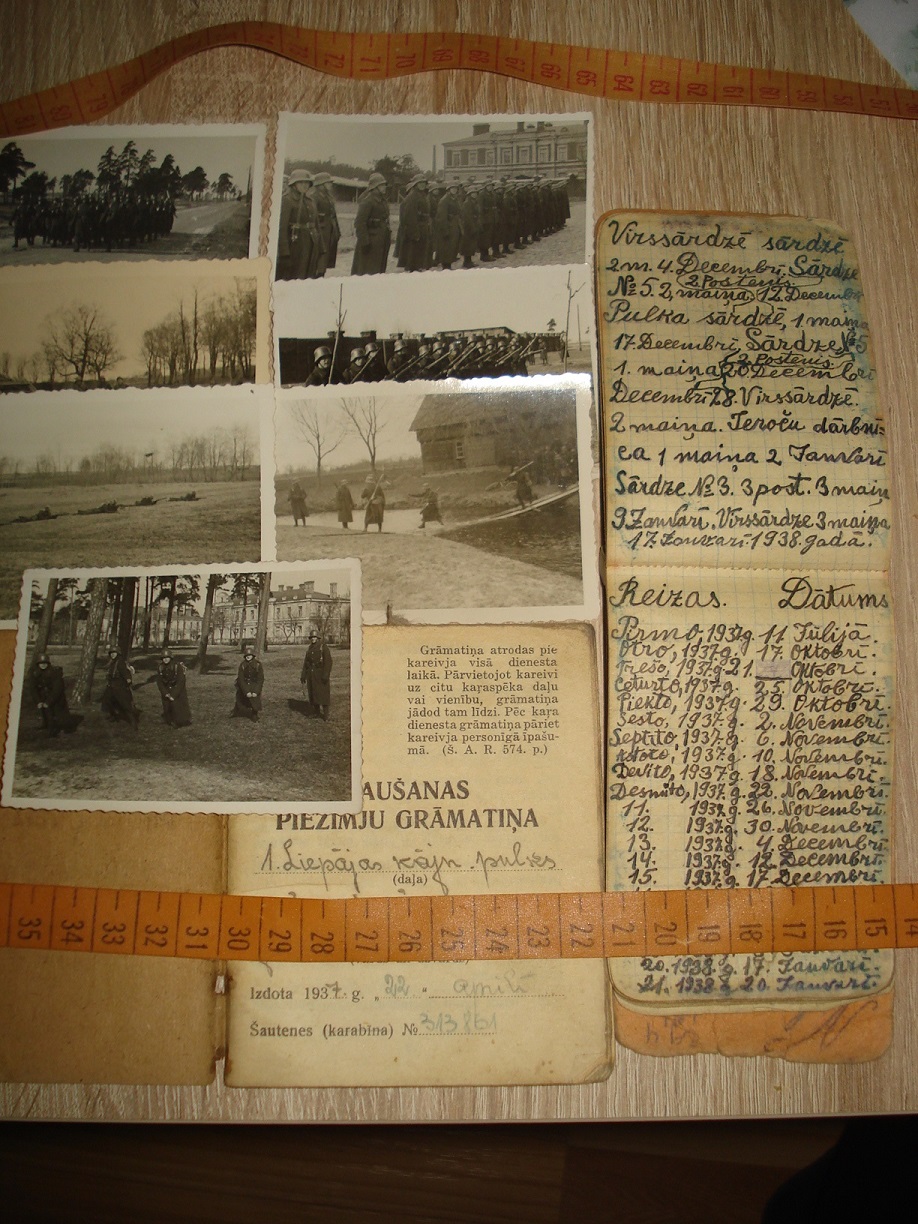 72 71 70 69 68 67 66 65 64 63 62 61 60 59
Virssārdzē sārdzē
2 m. 4. Decembrī. Sārdze
2 Postenis
№ 5. 2, maiņa, 12. Decembr
Pulka sārdzē, 1 maiņa
17. Decembrī, Sārdze № 5
2 Postenis
1. maiņa 20 Decembrī
Decembrī 28. Virssārdzē.
2 maiņa. Ieroču dārbnī=
ca 1 maiņa 2 Janvārī
Sārdze № 3. 3 post. 3 maiņ
9 Janvārī. Virssārdze 3 maiņa
17. Janvarī. 1938. gadā.
Reizas. Dātums
Pirmo, 1937g. 11 Jūlijā.
Otro, 1937.g. 17. Oktobrī.
Trešo, 1937.g. 21. Oktobrī.
Ceturto, 1937.g. 25. Oktobrī.
Piekto, 1937.g. 29. Oktobrī.
Sesto, 1937.g. 2. Novembrī.
Septīto, 1937.g. 6. Novembrī.
Astoto, 1937.g. 10. Novembrī.
Devīto, 1937.g. 18. Novembrī.
Desmito, 1937.g. 22. Novembrī.
11. 1937.g. 26. Novembrī.
12. 1937.g. 30. Novembrī.
13. 1937.g. 4. Decembrī.
14. 1937.g. 12. Decembrī.
15. 1937.g. 17. Decembrī.
20. 1938.g. 17. Janvārī.
21. 1938.g. 20. Janvarī.
Grāmatiņa atrodas pie
kareivja visā dienesta
laikā. Pārvietojot kareivi
uz citu kaŗaspēka daļu
vai vienību, grāmatiņa
jādod tam līdzi. Pēc kaŗa
dienesta grāmatiņa pāriet
kareivja personīgā īpašu-
mā. (Š. A. R. 574. p.)
AUŠANAS
PIEZĪMJU GRĀMATIŅA
1. Liepājas kājn. pulks
(daļa)
35 34 33 32 31 30 29 28 27 26 25 24 23 22 21 20 19 18 17 16 15 14
Izdota 1937. g. „22“ aprilī
Šautenes (karabīna) № 313861